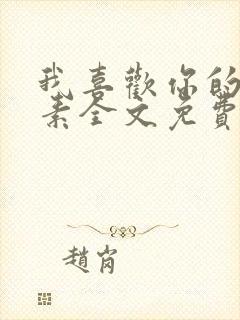 我喜歡你的
素全文免費
趙岗